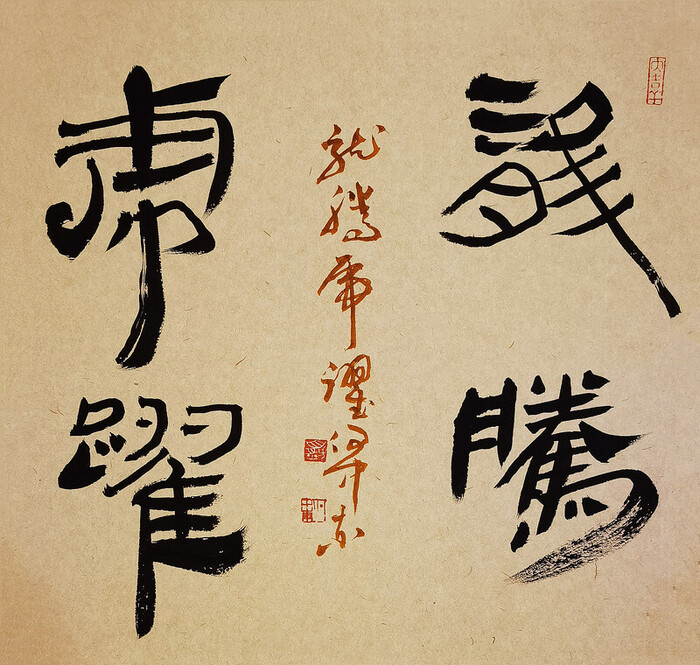 龍騰
虎躍
龍騰虎躍